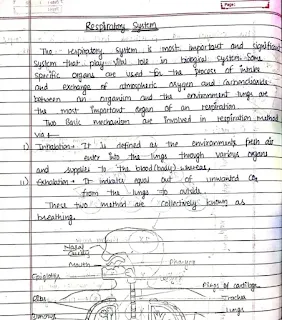 Page:
Respiratory System
The respiratory system is most important and significant
system that play vital role in biological system. Some
specific organs are used for the process of intake
and exchange of atmospheric oxygen and carbondioxide
between an organism and the environment lungs are
the most important organ of an respiration
Two Basic mechanism are involved in respiration method
via
i) Inhalation → It is defined as the environments fresh air
enter into the lungs through various organs
and supplies to the blood (body) whereas,
ii) Exhalation → It indicates out of unwanted CO2
from the lungs to outside
These two method are collectively known as
breathing.
Nasal
Cavity
Mouth
Pharynx
Epiglottis
Rings of cartilage
Ribs
Trachea
Lungs